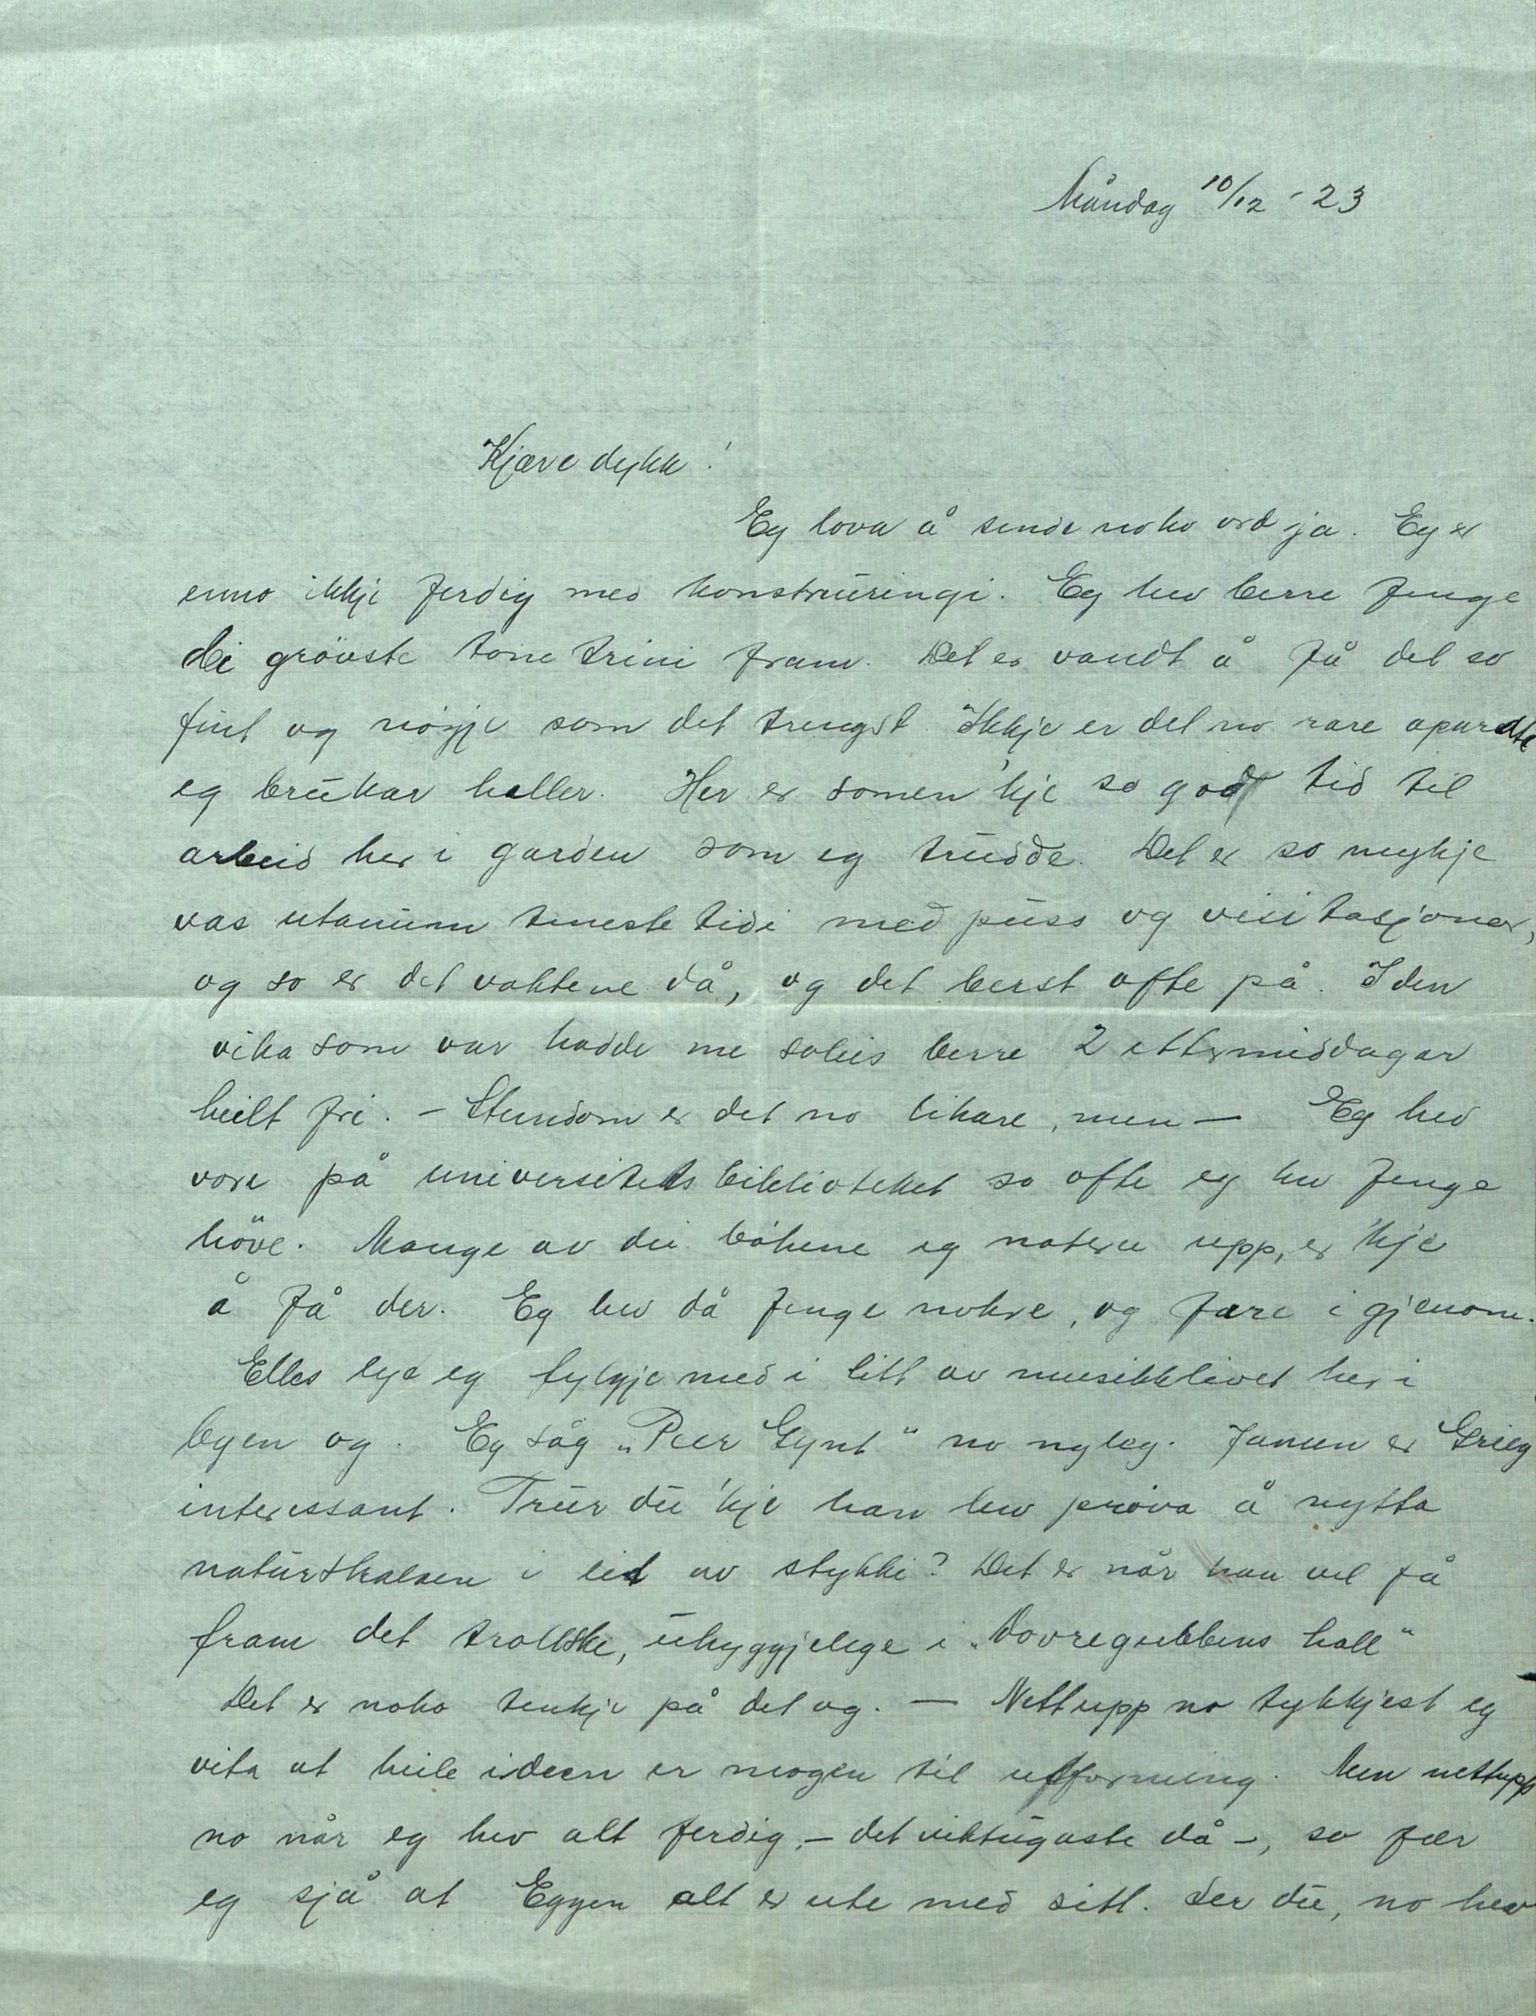 Måndag 10/12 - 23
Kjære dykk!
Eg lova å sende noko ord ja. Eg er
enno ikkje ferdig med konstrueringi. Eg hev berre fenge
dei grövste tone trini fram. Det er vandt å få det so
fint og nögje som det trengst. Ikkje er det no rare aparatte
eg brukar heller. Her er somen 'kje so godt tid til
arbeid her i garden som eg trudde. Det er so mykje
vas utanum teneste tidi med puss og visitasjoner,
og so er det vaktene då, og det berst ofte på. I den
vika som var hadde me soleis berre 2 ettermiddagar
heilt fri. – Stundom er det no likare, men – Eg hev
vore på universitetsbiblioteket so ofte eg hev fenge
höve. Mange av dei bökene eg noterte upp, er 'kje
å få der. Eg hev då fenge nokre, og fare i gjenom.
Elles lyt eg fylgje med i litt av musikklivet her i
byen og. Eg såg „Peer Gynt" no nyleg. Jamen er Grieg
interessant. Trur du 'kje han hev pröva å nytta
naturskalaen i eit av stykki? Det er når han vil få
fram det trollske, uhyggjelege i „Dovregubbens hall"
Det er noko tenkje på det og. — Nettupp no tykkjest eg
vita at heile ideen er mogen til utforming. Men nettupp
no når eg hev alt ferdig, – det viktugaste då –, so fær
eg sjå at Eggen alt er ute med sitt. Ser du, no hev